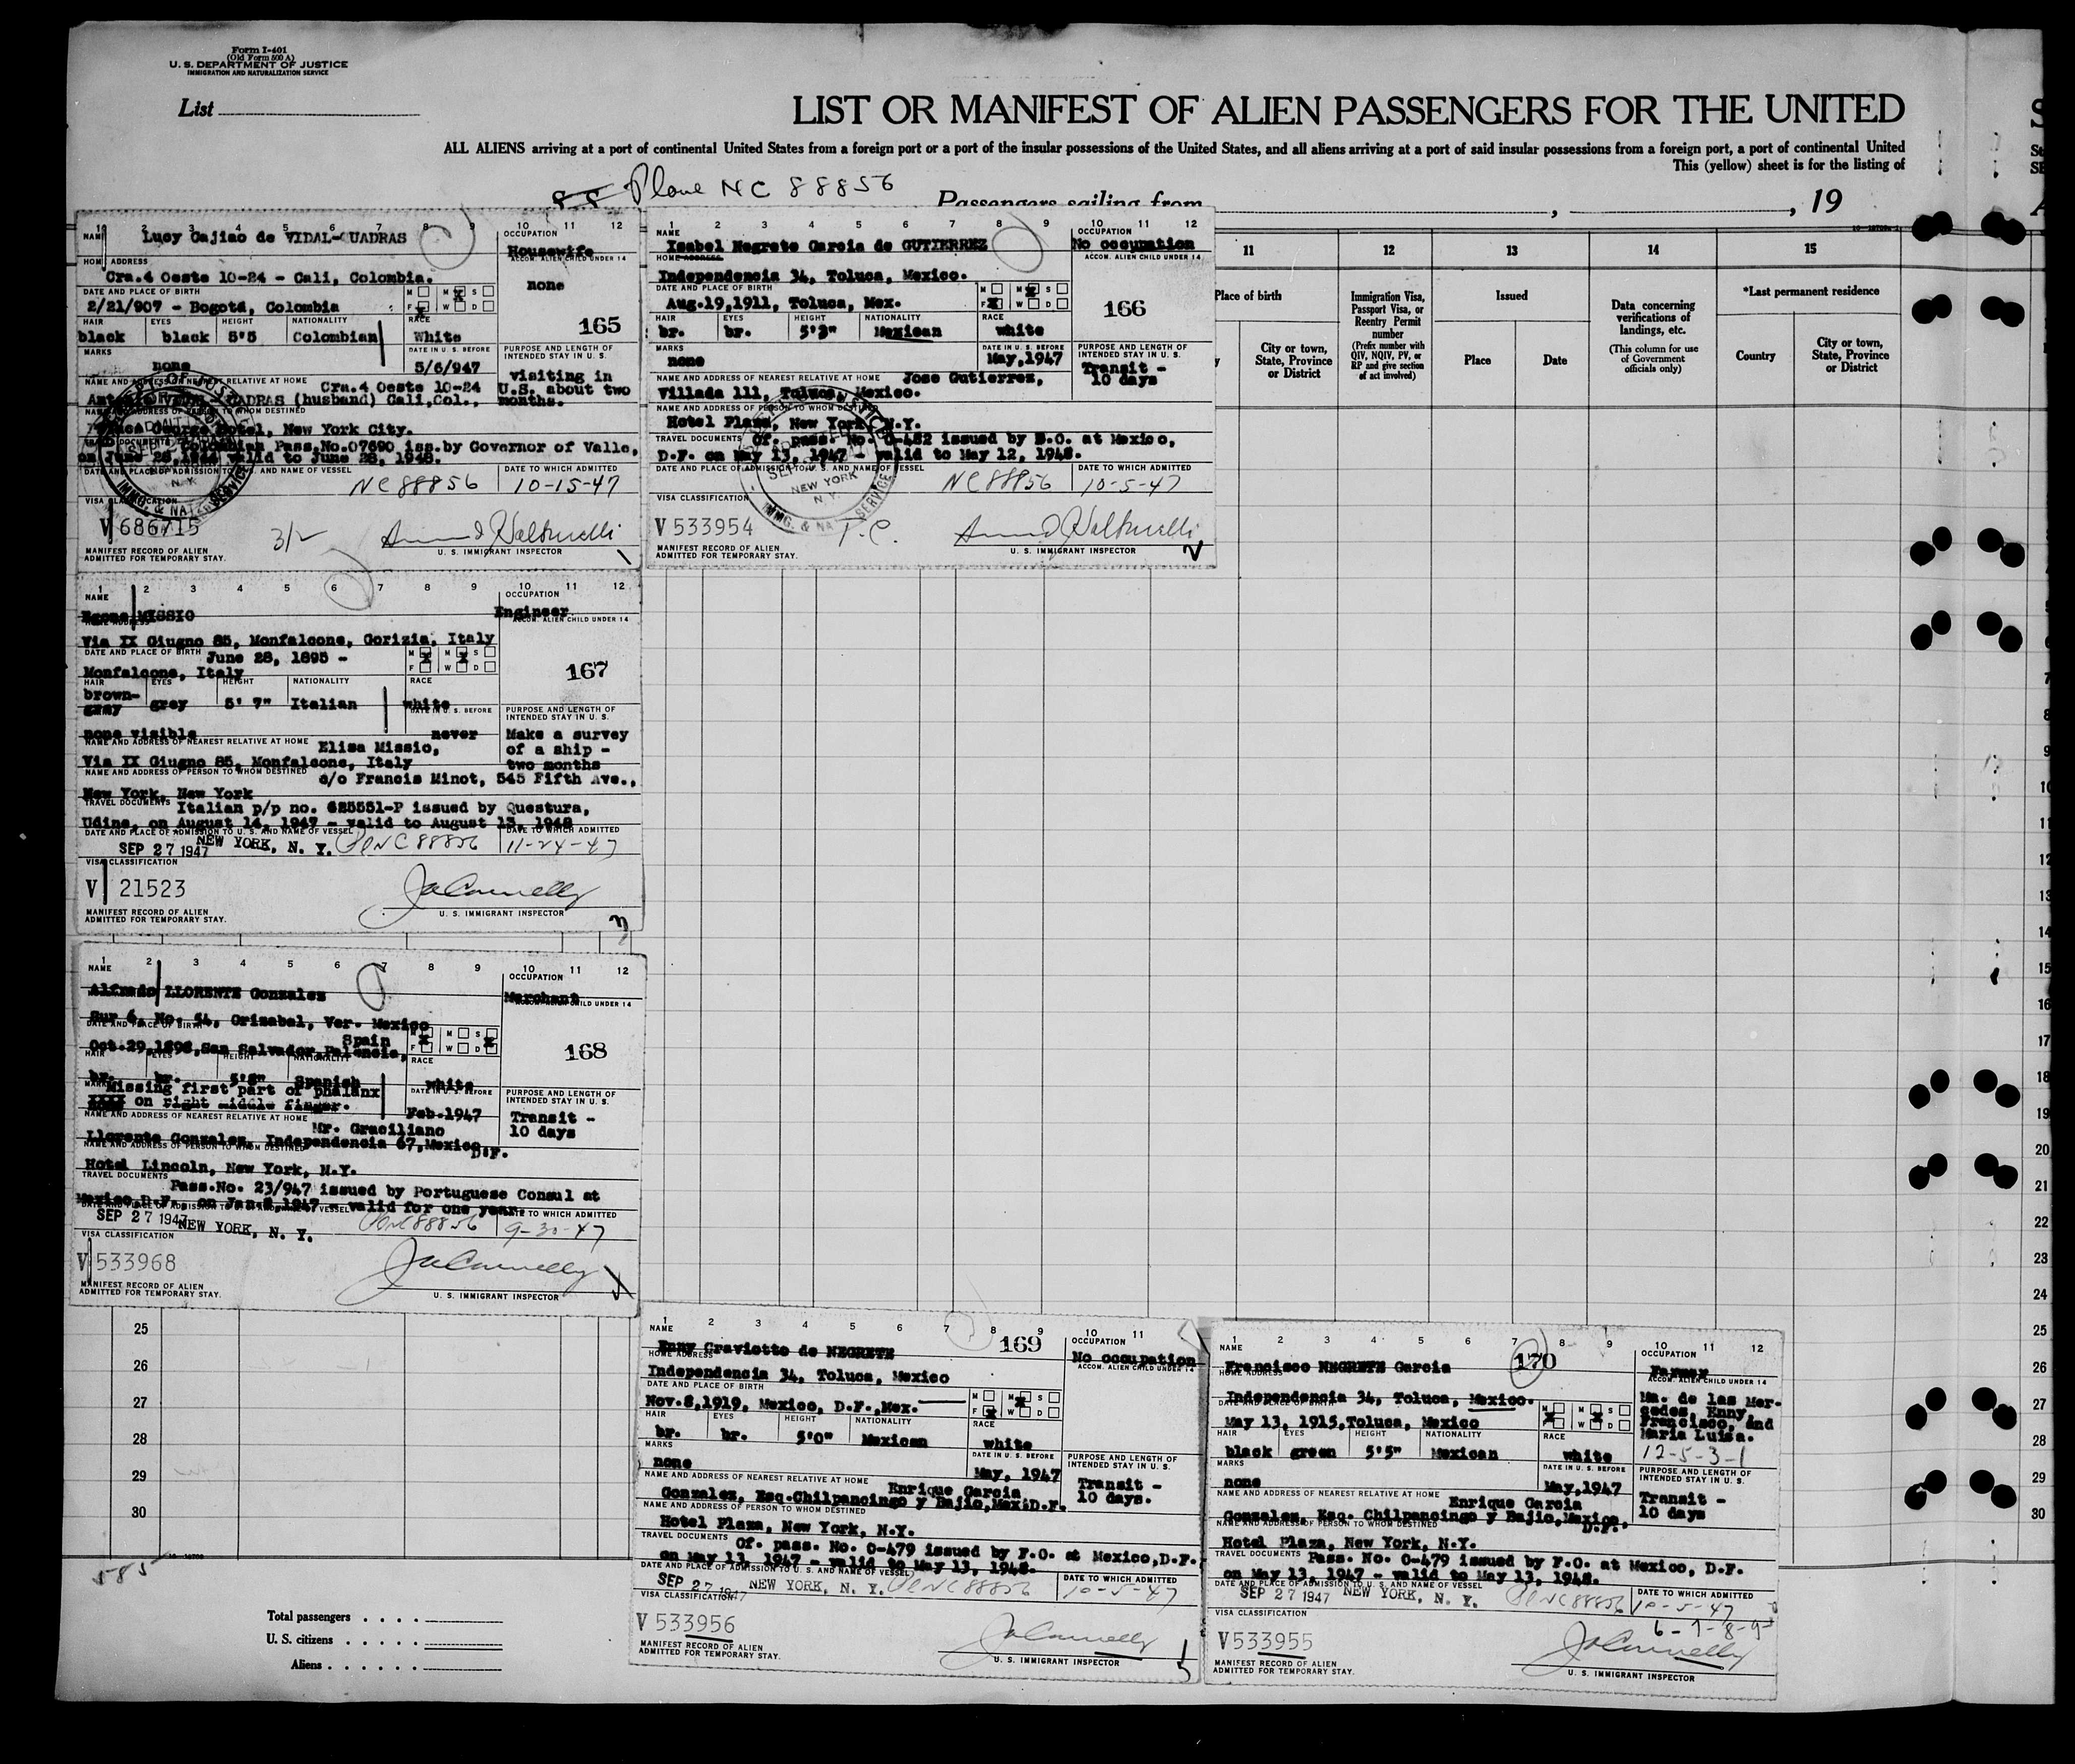 Form I-401
(Old Form 500 A)
U. S. DEPARTMENT OF JUSTICE
IMMIGRATION AND NATURALIZATION SERVICE
List
LIST OR MANIFEST OF ALIEN PASSENGERS FOR THE UNITED
ALL ALIENS arriving at a port of continental United States from a foreign port or a port of the insular possessions of the United States, and all aliens arriving at a port of said insular possessions from a foreign port, a port of continental United
This (yellow) sheet is for the listing of
Plane NC 88856
Passengers sailing from , , 19
1 2 3 4 5 6 7 8 9 10 11 12
NAME Lucy Cajiao de VIDAL-CUADRAS
OCCUPATION
Housewife
HOME ADDRESS
ACCOM. ALIEN CHILD UNDER 14
Cra.4 Oeste 10-24 - Cali, Colombia.
none
DATE AND PLACE OF BIRTH
M M S
2/21/907 - Bogotá, Colombia
F W D
HAIR EYES HEIGHT NATIONALITY RACE
165
black black 5'5 Colombian White
MARKS DATE IN U. S. BEFORE PURPOSE AND LENGTH OF INTENDED STAY IN U. S.
none 5/6/947
visiting in
U.S. about two
months.
NAME AND ADDRESS OF NEAREST RELATIVE AT HOME Cra.4 Oeste 10-24
(husband) Cali,Col.,
NAME AND ADDRESS OF PERSON TO WHOM DESTINED
Hotel, New York City.
Pass.No.07690 iss.by Governor of Valle,
on June valid to June 28, 1948.
DATE AND PLACE OF ADMISSION TO U. S. AND NAME OF VESSEL DATE TO WHICH ADMITTED
NC88856 10-15-47
VISA CLASSIFICATION
V 686715
MANIFEST RECORD OF ALIEN
ADMITTED FOR TEMPORARY STAY.
U. S. IMMIGRANT INSPECTOR
1 2 3 4 5 6 7 8 9 10 11 12
NAME OCCUPATION
Isabel Negrete Garcia de GUTIERREZ No occupation
HOME ADDRESS ACCOM. ALIEN CHILD UNDER 14
Independencia 34, Toluca, Mexico.
DATE AND PLACE OF BIRTH
M M S
Aug.19,1911, Toluca, Mex.
F W D
166
HAIR EYES HEIGHT NATIONALITY RACE
br. br. 5'3" Mexican white
MARKS DATE IN U. S. BEFORE PURPOSE AND LENGTH OF INTENDED STAY IN U. S.
none May,1947 Transit -
10 days
NAME AND ADDRESS OF NEAREST RELATIVE AT HOME Jose Gutierrez,
Villada 111, Toluca, Mexico.
NAME AND ADDRESS OF PERSON TO WHOM DESTINED
Hotel Plaza, New York, N.Y.
TRAVEL DOCUMENTS Of. pass. No. 0-482 issued by at Mexico,
D.F. on May 13, 1947 - valid to May 12, 1948.
DATE AND PLACE OF ADMISSION TO U. S. AND NAME OF VESSEL DATE TO WHICH ADMITTED
NC88856 10-5-47
NEW YORK
N Y.
VISA CLASSIFICATION
V 533954 T.C.
MANIFEST RECORD OF ALIEN
ADMITTED FOR TEMPORARY STAY.
U. S. IMMIGRANT INSPECTOR
11 12 13 14 15
Place of birth
City or town, State, Province or District
Immigration Visa, Passport Visa, or Reentry Permit number
(Prefix number with QIV, NQIV, PV, or RP and give section of act involved)
Issued
Place Date
Data concerning verifications of landings, etc.
(This column for use of Government officials only)
*Last permanent residence
Country
City or town, State, Province or District
1 2 3 4 5 6 7 8 9 10 11 12
NAME OCCUPATION
MISSIO Engineer
ACCOM. ALIEN CHILD UNDER 14
Via IX Giugno 85, Monfalcone, Gorizia, Italy
DATE AND PLACE OF BIRTH June 28, 1895 -
M M S
Monfalcone, Italy
F W D
167
HAIR EYES HEIGHT NATIONALITY RACE
brown-
gray grey 5' 7" Italian white
DATE IN U. S. BEFORE PURPOSE AND LENGTH OF INTENDED STAY IN U. S.
none visible never Make a survey
of a ship -
two months
NAME AND ADDRESS OF NEAREST RELATIVE AT HOME Elisa Missio,
Via IX Giugno 85, Monfalcone, Italy
NAME AND ADDRESS OF PERSON TO WHOM DESTINED c/o Francis Minot, 545 Fifth Ave.,
New York, New York
TRAVEL DOCUMENTS Italian p/p no. 625551-P issued by Questura,
Udine, on August 14, 1947 - valid to August 13, 1948
DATE AND PLACE OF ADMISSION TO U. S. AND NAME OF VESSEL DATE TO WHICH ADMITTED
SEP 27 1947 NEW YORK, N. Y. NC88856 11-24-47
VISA CLASSIFICATION
V 21523
MANIFEST RECORD OF ALIEN
ADMITTED FOR TEMPORARY STAY.
U. S. IMMIGRANT INSPECTOR
1 2 3 4 5 6 7 8 9 10 11 12
NAME OCCUPATION
Alfredo LLORENTE Gonzalez Merchant
Sur 6, No. 54, Orizabal, Ver. Mexico
Spain
Oct.29,1898,San Salvador,Palencia,
168
br. br. 5'8" Spanish white
MARKS Missing first part of phalanx
on right middle finger.
DATE IN U. S. BEFORE PURPOSE AND LENGTH OF INTENDED STAY IN U. S.
Feb.1947 Transit -
10 days
NAME AND ADDRESS OF NEAREST RELATIVE AT HOME Mr. Graciliano
Llorente Gonzalez, Independencia 67,Mexico,
D.F.
NAME AND ADDRESS OF PERSON TO WHOM DESTINED
Hotel Lincoln, New York, N.Y.
TRAVEL DOCUMENTS
Pass.No. 23/947 issued by Portuguese Consul at
Mexico,D.F. on Jan.8 1947 - valid for one year.
SEP 27 1947 NEW YORK, N. Y. NC88856 9-30-47
VISA CLASSIFICATION
V 533968
MANIFEST RECORD OF ALIEN
ADMITTED FOR TEMPORARY STAY.
U. S. IMMIGRANT INSPECTOR
1 2 3 4 5 6 7 8 9 10 11
NAME 169 OCCUPATION
Enny Craviotto de NEGRETE No occupation
HOME ADDRESS ACCOM. ALIEN CHILD UNDER 14
Independencia 34, Toluca, Mexico
DATE AND PLACE OF BIRTH
M M S
Nov.8,1919, Mexico, D.F.,Mex.
F W D
HAIR EYES HEIGHT NATIONALITY RACE
br. br. 5'0" Mexican white
MARKS DATE IN U. S. BEFORE PURPOSE AND LENGTH OF INTENDED STAY IN U. S.
none May, 1947 Transit -
10 days.
NAME AND ADDRESS OF NEAREST RELATIVE AT HOME Enrique Garcia
Gonzalez, Esq.Chilpancingo y Bajio,Mex.D.F.
NAME AND ADDRESS OF PERSON TO WHOM DESTINED
Hotel Plaza, New York, N.Y.
TRAVEL DOCUMENTS
Of. pass. No. 0-479 issued by F.O. at Mexico,D.F.
on May 13, 1947 - valid to May 13, 1948.
DATE AND PLACE OF ADMISSION TO U. S. AND NAME OF VESSEL DATE TO WHICH ADMITTED
SEP 27 1947 NEW YORK, N. Y. NC88856 10-5-47
VISA CLASSIFICATION
V 533956
MANIFEST RECORD OF ALIEN
ADMITTED FOR TEMPORARY STAY.
U. S. IMMIGRANT INSPECTOR
1 2 3 4 5 6 7 8 9 10 11 12
NAME 170 OCCUPATION
Francisco NEGRETE Garcia Farmer
HOME ADDRESS ACCOM. ALIEN CHILD UNDER 14
Independencia 34, Toluca, Mexico.
Ma. de las Mer-
cedes, Enny,
Francisco, and
Maria Luisa.
12-5-3-1
May 13, 1915,Toluca, Mexico
M M S
F W D
HAIR EYES HEIGHT NATIONALITY RACE
black green 5'5" Mexican white
MARKS DATE IN U. S. BEFORE PURPOSE AND LENGTH OF INTENDED STAY IN U. S.
none May,1947 Transit -
10 days
NAME AND ADDRESS OF NEAREST RELATIVE AT HOME Enrique Garcia
Gonzalez, Esq. Chilpancingo y Bajio,Mexico,
D.F.
NAME AND ADDRESS OF PERSON TO WHOM DESTINED
Hotel Plaza, New York, N.Y.
TRAVEL DOCUMENTS Pass. No. 0-479 issued by F.O. at Mexico, D.F.
on May 13, 1947 - valid to May 13, 1948.
DATE AND PLACE OF ADMISSION TO U. S. AND NAME OF VESSEL DATE TO WHICH ADMITTED
SEP 27 1947 NEW YORK, N. Y. NC88856 10-5-47
VISA CLASSIFICATION
V 533955
MANIFEST RECORD OF ALIEN
ADMITTED FOR TEMPORARY STAY.
U. S. IMMIGRANT INSPECTOR
25
26
27
28
29
30
585
Total passengers . . . .
U. S. citizens . . . . .
Aliens . . . . . .
6
7
8
9
10
11
12
13
14
15
16
17
18
19
20
21
22
23
24
25
26
27
28
29
30